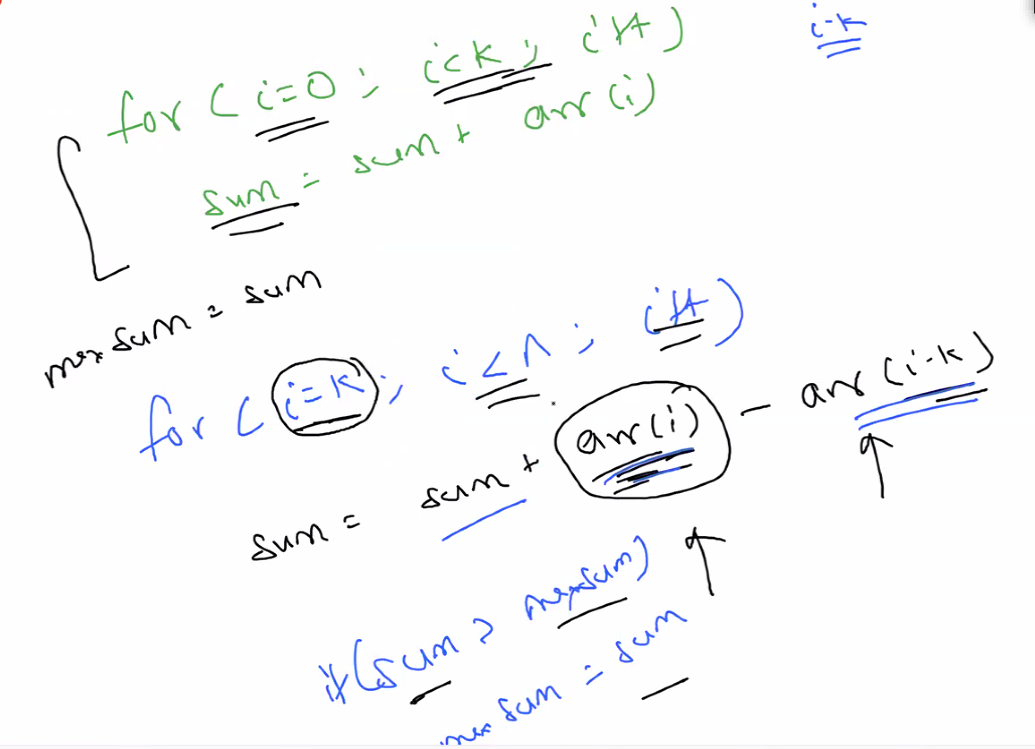 i-k
for ( i=0 ; i<k ; i++ )
sum = sum + arr (i)
maxsum = sum
for ( i=k ; i<n ; i++ )
sum = sum + arr (i) - arr (i-k)
if (sum > maxsum)
maxsum = sum